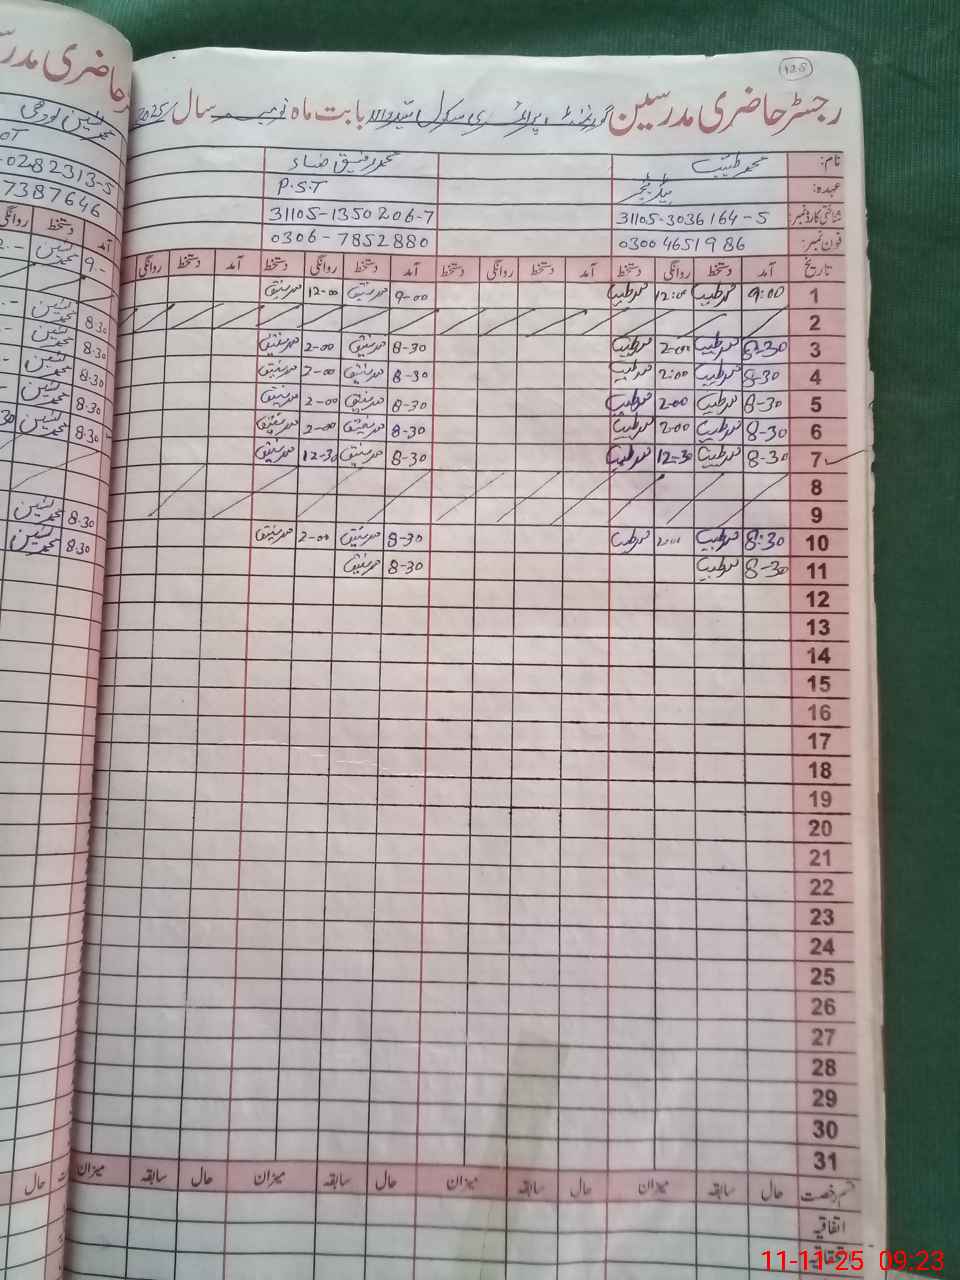 128
رجسٹر حاضری مدرسین گورنمنٹ پرائمری سکول بابت ماہ نومبر سال 2025
نام: محمد طیب محمد رفیق ضیاء
عہدہ: ہیڈ ٹیچر P.S.T
شناختی کارڈ نمبر: 31105-3036164-5 31105-1350206-7
فون نمبر: 0300 4651986 0306-7852880
تاریخ آمد دستخط روانگی دستخط آمد دستخط روانگی دستخط آمد دستخط روانگی دستخط آمد دستخط روانگی
1 9:00 محمد طیب 12:00 محمد طیب 9-00 محمد رفیق 12-00 محمد رفیق
2
3 8-30 محمد طیب 2-00 محمد طیب 8-30 محمد رفیق 2-00 محمد رفیق
4 8-30 محمد طیب 2:00 محمد طیب 8-30 محمد رفیق 2-00 محمد رفیق
5 8-30 محمد طیب 2-00 محمد طیب 8-30 محمد رفیق 2-00 محمد رفیق
6 8-30 محمد طیب 2-00 محمد طیب 8-30 محمد رفیق 2-00 محمد رفیق
7 8-30 محمد طیب 12-30 محمد طیب 8-30 محمد رفیق 12-30 محمد رفیق
8
9
10 8:30 محمد طیب 2-00 محمد طیب 8-30 محمد رفیق 2-00 محمد رفیق
11 8-30 محمد طیب 8-30 محمد رفیق
12
13
14
15
16
17
18
19
20
21
22
23
24
25
26
27
28
29
30
31
قسم رخصت حال سابقہ میزان حال سابقہ میزان حال سابقہ میزان حال سابقہ میزان
اتفاقیہ
حاضری مدرسین
0282313-5
7387646
آمد دستخط روانگی
9.-
8.30
8.30
8.30
8.30
8.30
8.30
8.30
حال
11-11-25 09:23